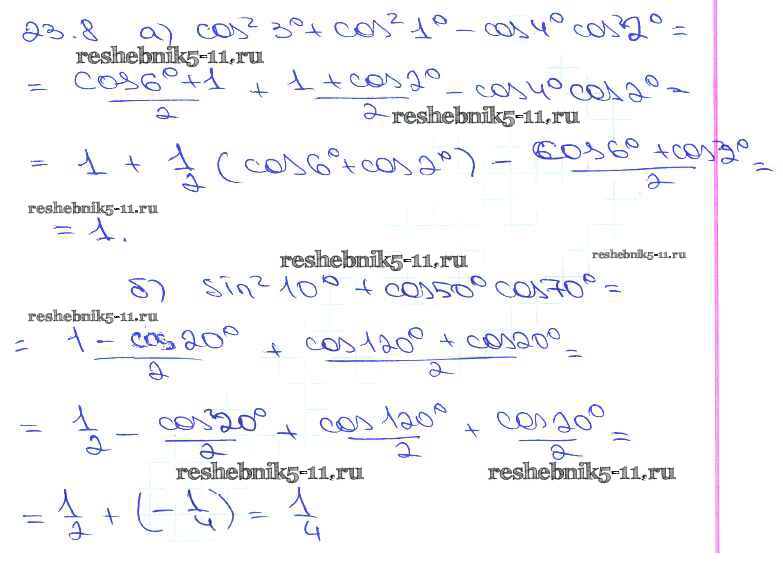 23.8 а) cos² 3° + cos² 1° - cos4° cos2° =
reshebnik5-11.ru
= (cos6° + 1)/2 + (1 + cos2°)/2 - cos4° cos2° =
reshebnik5-11.ru
= 1 + 1/2 (cos6° + cos2°) - (cos6° + cos2°)/2 =
reshebnik5-11.ru
= 1.
reshebnik5-11.ru reshebnik5-11.ru
б) sin² 10° + cos50° cos70° =
reshebnik5-11.ru
= (1 - cos20°)/2 + (cos120° + cos20°)/2 =
= 1/2 - cos20°/2 + cos120°/2 + cos20°/2 =
reshebnik5-11.ru reshebnik5-11.ru
= 1/2 + (-1/4) = 1/4